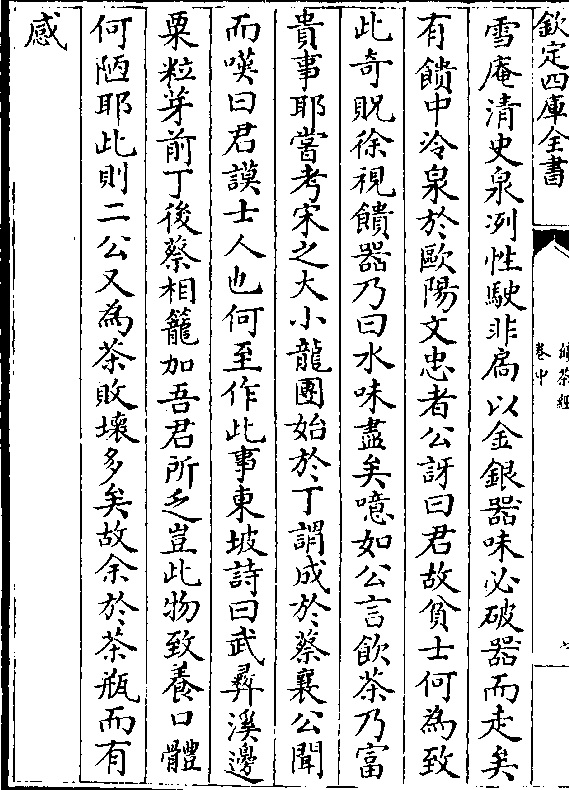 欽定四庫全書
續茶經
卷中
雪庵清史泉冽性駛非扃以金銀器味必破器而走矣
有饋中泠泉於歐陽文忠者公訝曰君故貧士何為致
此奇貺徐視饋器乃曰水味盡矣噫如公言飲茶乃富
貴事耶嘗考宋之大小龍團始於丁謂成於蔡襄公聞
而嘆曰君謨士人也何至作此事東坡詩曰武彛溪邊
粟粒芽前丁後蔡相籠加吾君所乏豈此物致養口體
何陋耶此則二公又為茶敗壞多矣故余於茶瓶而有
感